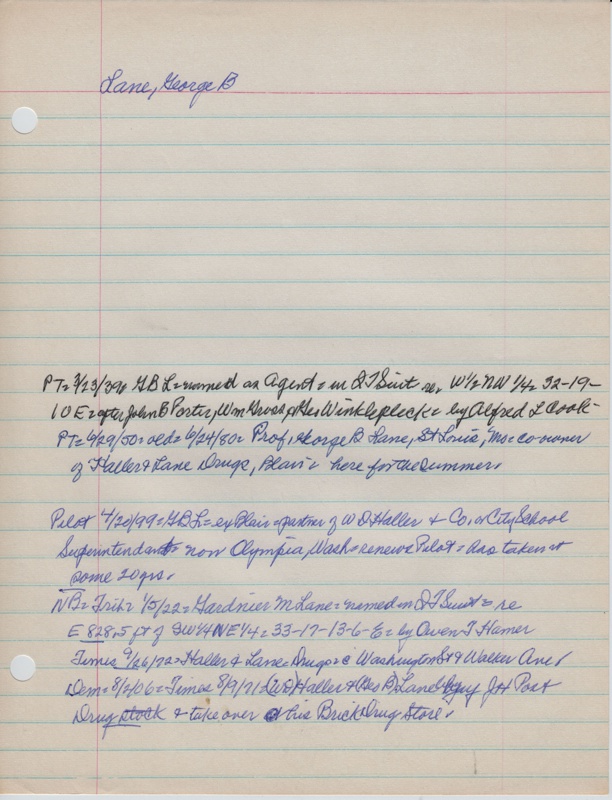 Lane, George B
PT= 3/23/39= GBL= named as Agent= in QTSuit re, W½ NW ¼= 32-19-
10 E= after John B Porter, Wm Gross, & Geo Winklepleck= by Alfred L Cook-
PT= 6/29/50= old= 6/24/80= Prof, George B Lane, St Louis, Mo= co-owner
of Haller & Lane Drugs, Blair= here for the Summer.
Pilot 4/20/99= GBL= ex Blair= partner of W D Haller & Co, or City School
Superintendant= now Olympia, Wash= renews Pilot= has taken it
some 20 yrs.
NB= Trib= 1/5/22= Gardnier M Lane= named in QTSuit= re
E 828.5 ft of SW¼NE¼= 33-17-13-6-E= by Owen T Hamer
Times 9/26/72= Haller & Lane= Drugs= @ Washington St & Walker Ave,
Dem= 8/2/06= Times 8/9/71 (WD) Haller & (Geo B) Lane buy J H Post
Drug stock & take over his Brick Drug Store.